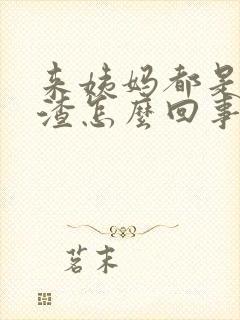 来姨妈都是
渣怎麼回事
茗末